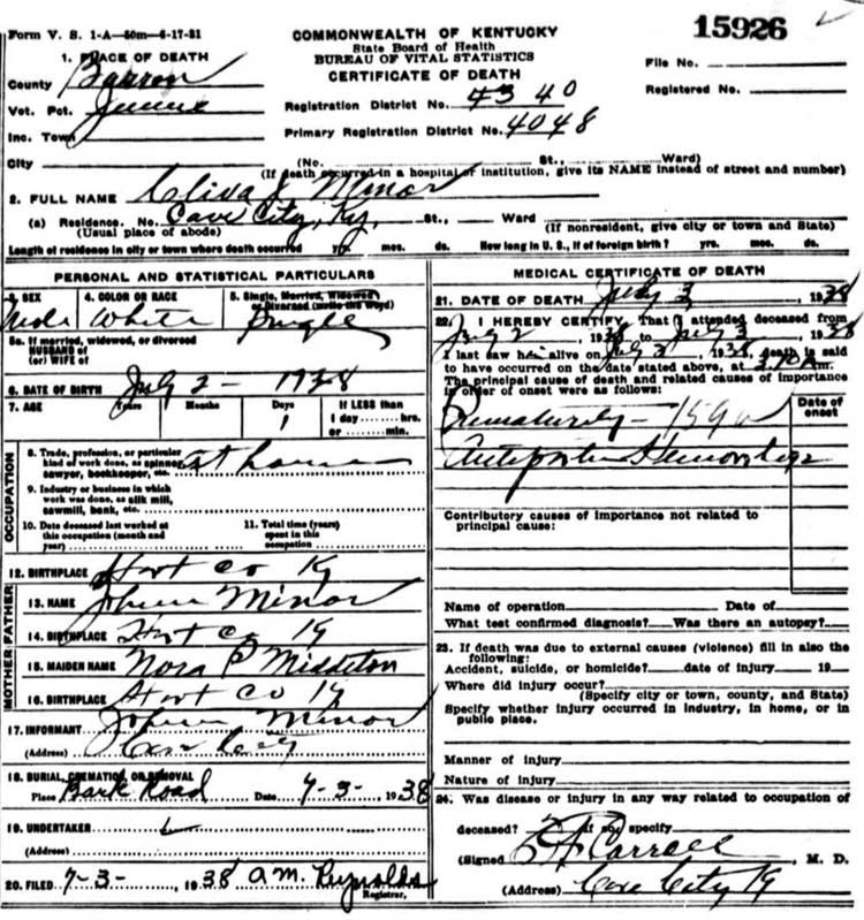 15926
Form V. S. 1-A—50m—6-17-31
COMMONWEALTH OF KENTUCKY
State Board of Health
BUREAU OF VITAL STATISTICS
CERTIFICATE OF DEATH
File No.
Registered No.
1. PLACE OF DEATH
County Barren
Vot. Pct.
Inc. Town
Registration District No. 4340
Primary Registration District No. 4048
City (No. St., Ward)
(If death occurred in a hospital or institution, give its NAME instead of street and number)
2. FULL NAME Cliva J Minor
(a) Residence. No. Cave City, Ky, St., Ward
(Usual place of abode) (If nonresident, give city or town and State)
Length of residence in city or town where death occurred yrs. mos. ds. How long in U. S., if of foreign birth? yrs. mos. ds.
PERSONAL AND STATISTICAL PARTICULARS
3. SEX 4. COLOR OR RACE 5. Single, Married, Widowed
or Divorced (write the word)
Male White Single
5a. If married, widowed, or divorced
HUSBAND of
(or) WIFE of
6. DATE OF BIRTH July 2 - 1938
7. AGE Years Months Days If LESS than
1 1 day ........ hrs.
or ........ min.
OCCUPATION
8. Trade, profession, or particular
kind of work done, as spinner, at home
sawyer, bookkeeper, etc.
9. Industry or business in which
work was done, as silk mill,
sawmill, bank, etc.
10. Date deceased last worked at
this occupation (month and
year)
11. Total time (years)
spent in this
occupation
12. BIRTHPLACE Hart Co Ky
FATHER
13. NAME Minor
14. BIRTHPLACE Hart Co Ky
MOTHER
15. MAIDEN NAME Nora P Middleton
16. BIRTHPLACE Hart Co Ky
17. INFORMANT Minor
(Address) Cave City
18. BURIAL, CREMATION, OR REMOVAL
Place Bark Road Date 7-3- 1938
19. UNDERTAKER
(Address)
20. FILED 7-3-, 1938 A.M. Reynolds
Registrar.
MEDICAL CERTIFICATE OF DEATH
21. DATE OF DEATH July 3, 1938
22. I HEREBY CERTIFY, That I attended deceased from
July 2, 1938 to July 3, 1938
I last saw him alive on July 3, 1938, death is said
to have occurred on the date stated above, at m.
The principal cause of death and related causes of importance
in order of onset were as follows:
Date of
onset
Prematurity - 159
Antepartum Hemorrhage
Contributory causes of importance not related to
principal cause:
Name of operation Date of
What test confirmed diagnosis? Was there an autopsy?
23. If death was due to external causes (violence) fill in also the
following:
Accident, suicide, or homicide? date of injury 19
Where did injury occur?
(Specify city or town, county, and State)
Specify whether injury occurred in industry, in home, or in
public place.
Manner of injury
Nature of injury
24. Was disease or injury in any way related to occupation of
deceased? If so, specify
(Signed , M. D.
(Address) Cave City Ky